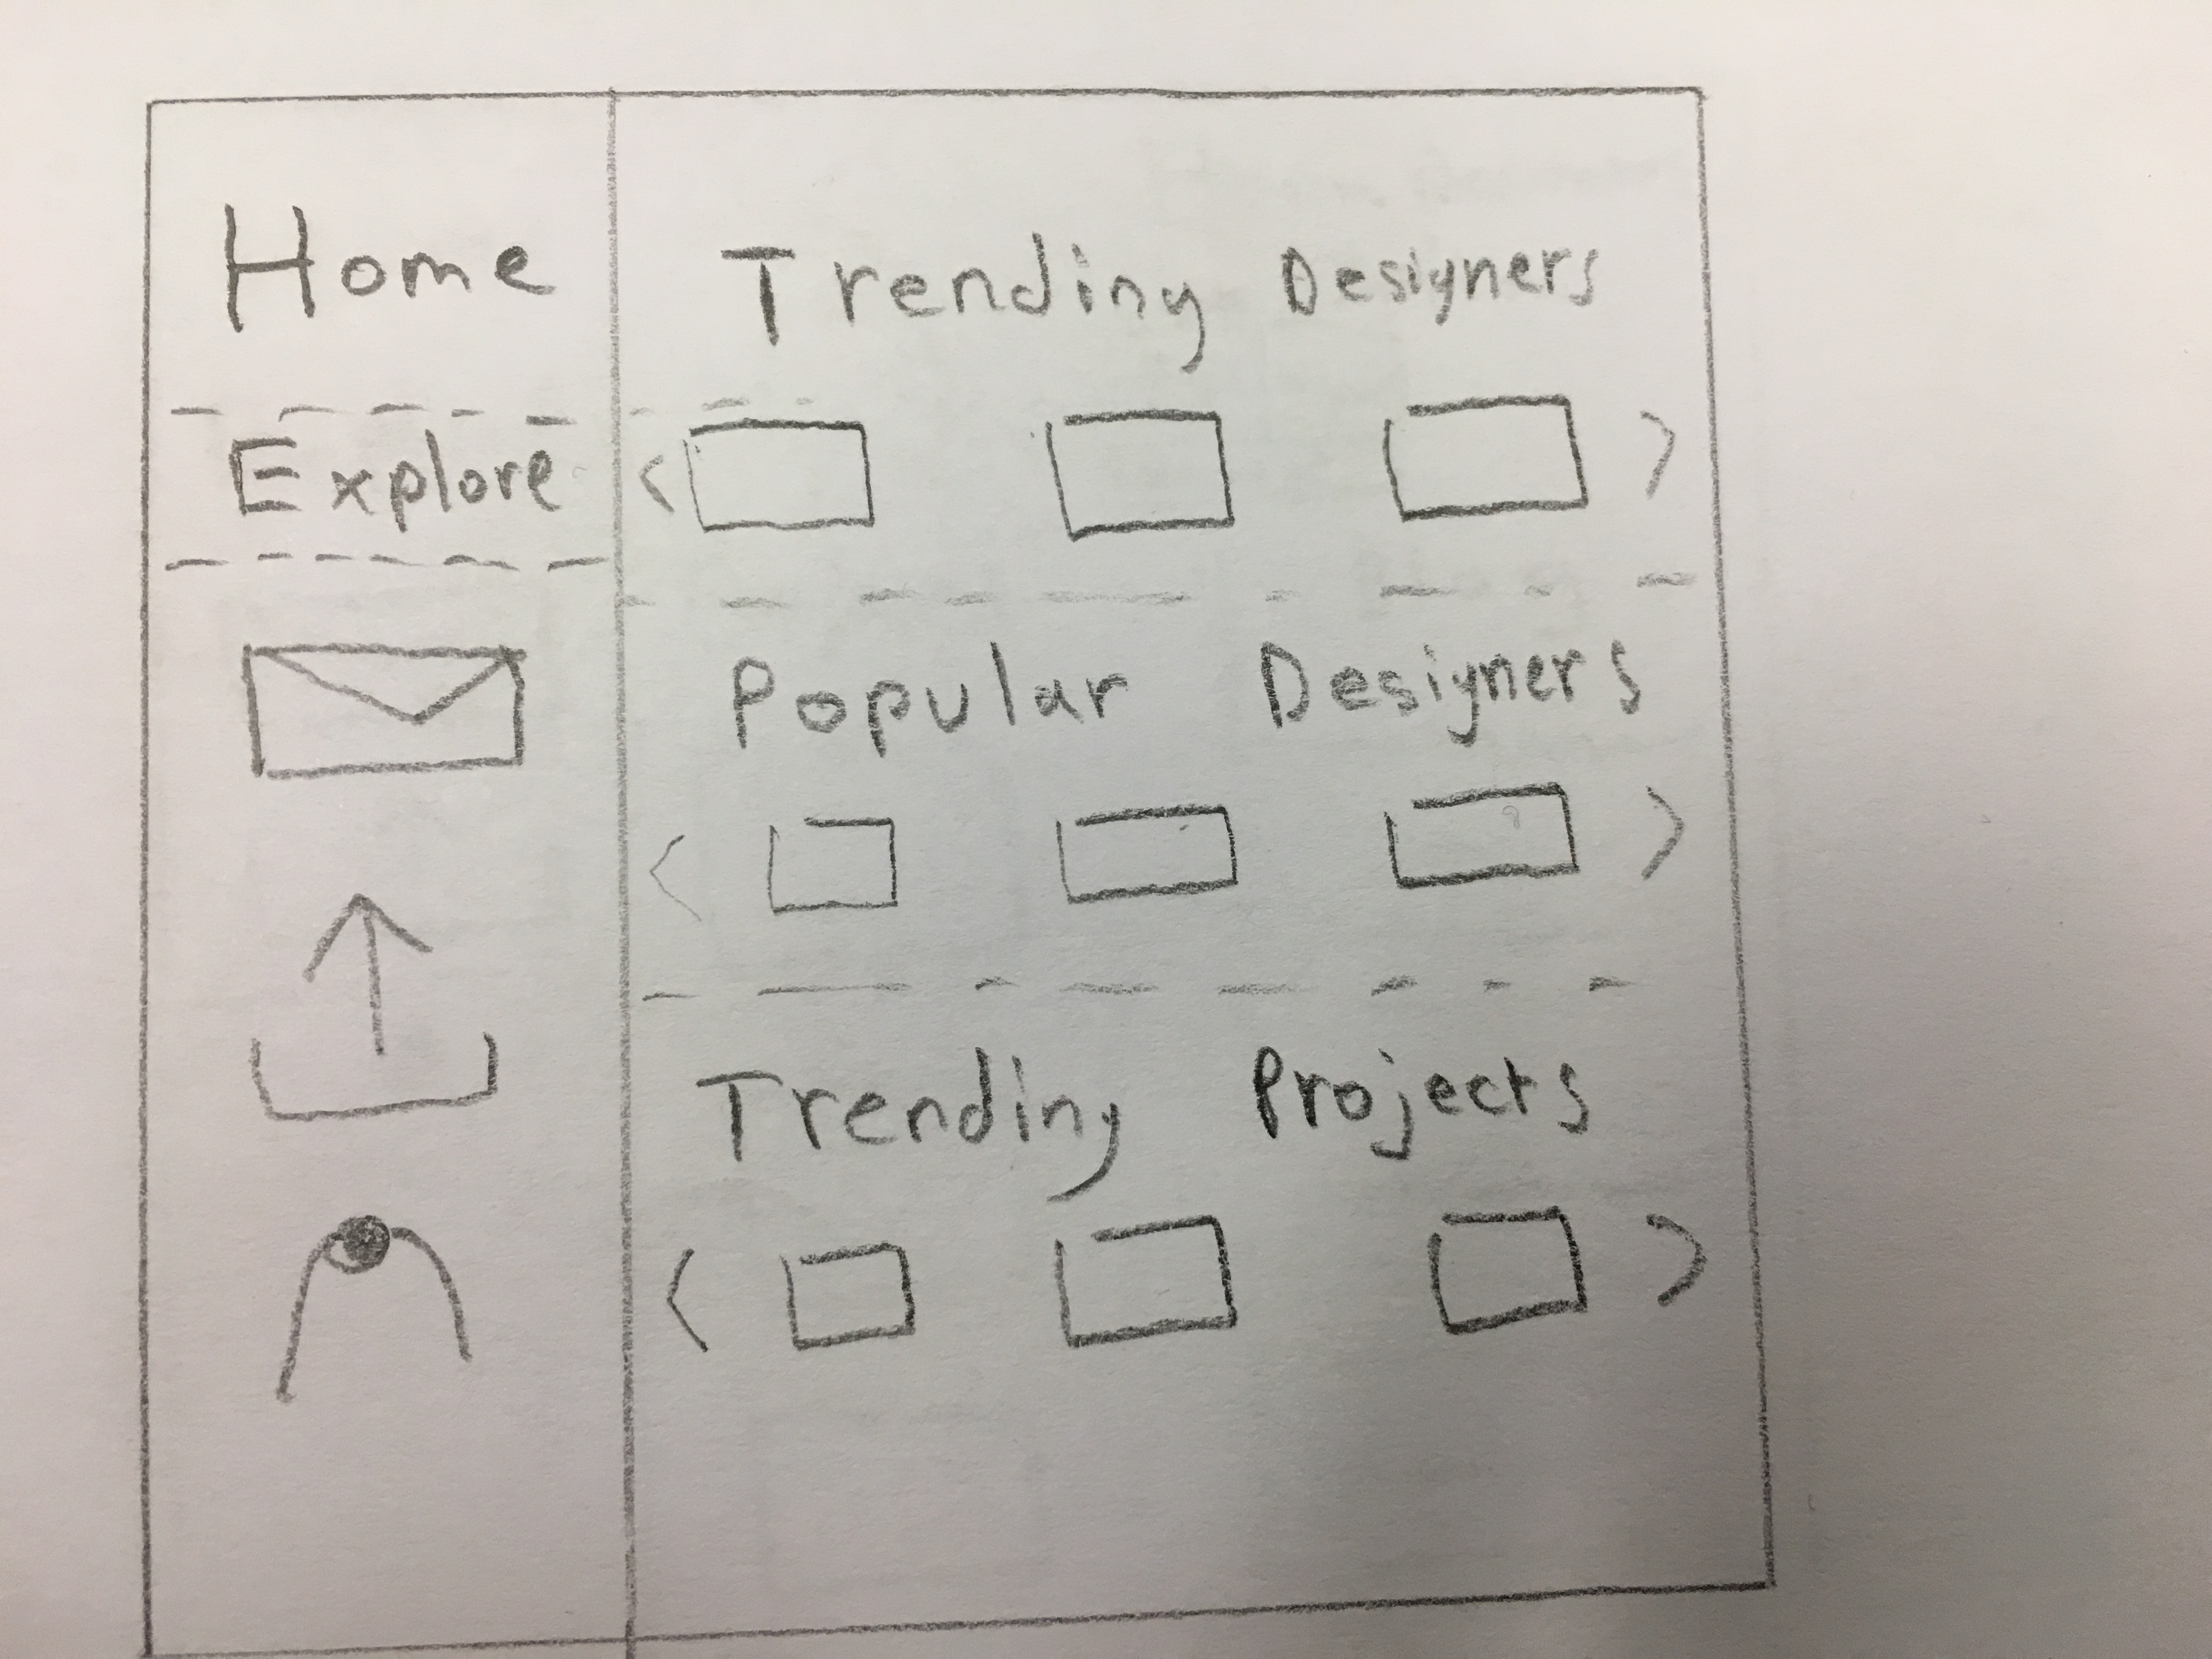 Home
Explore
Trending Designers
Popular Designers
Trending Projects